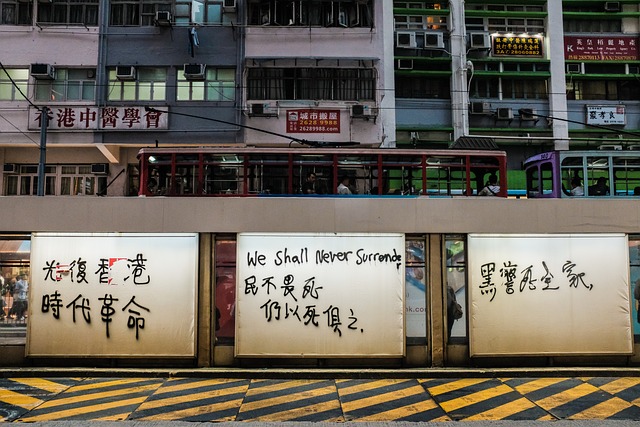 香港中醫學會
城市搬屋
2628 9988
26289988.com
光復香港
時代革命
We Shall Never Surrender
民不畏死
何以死俱之.
黑警死全家.